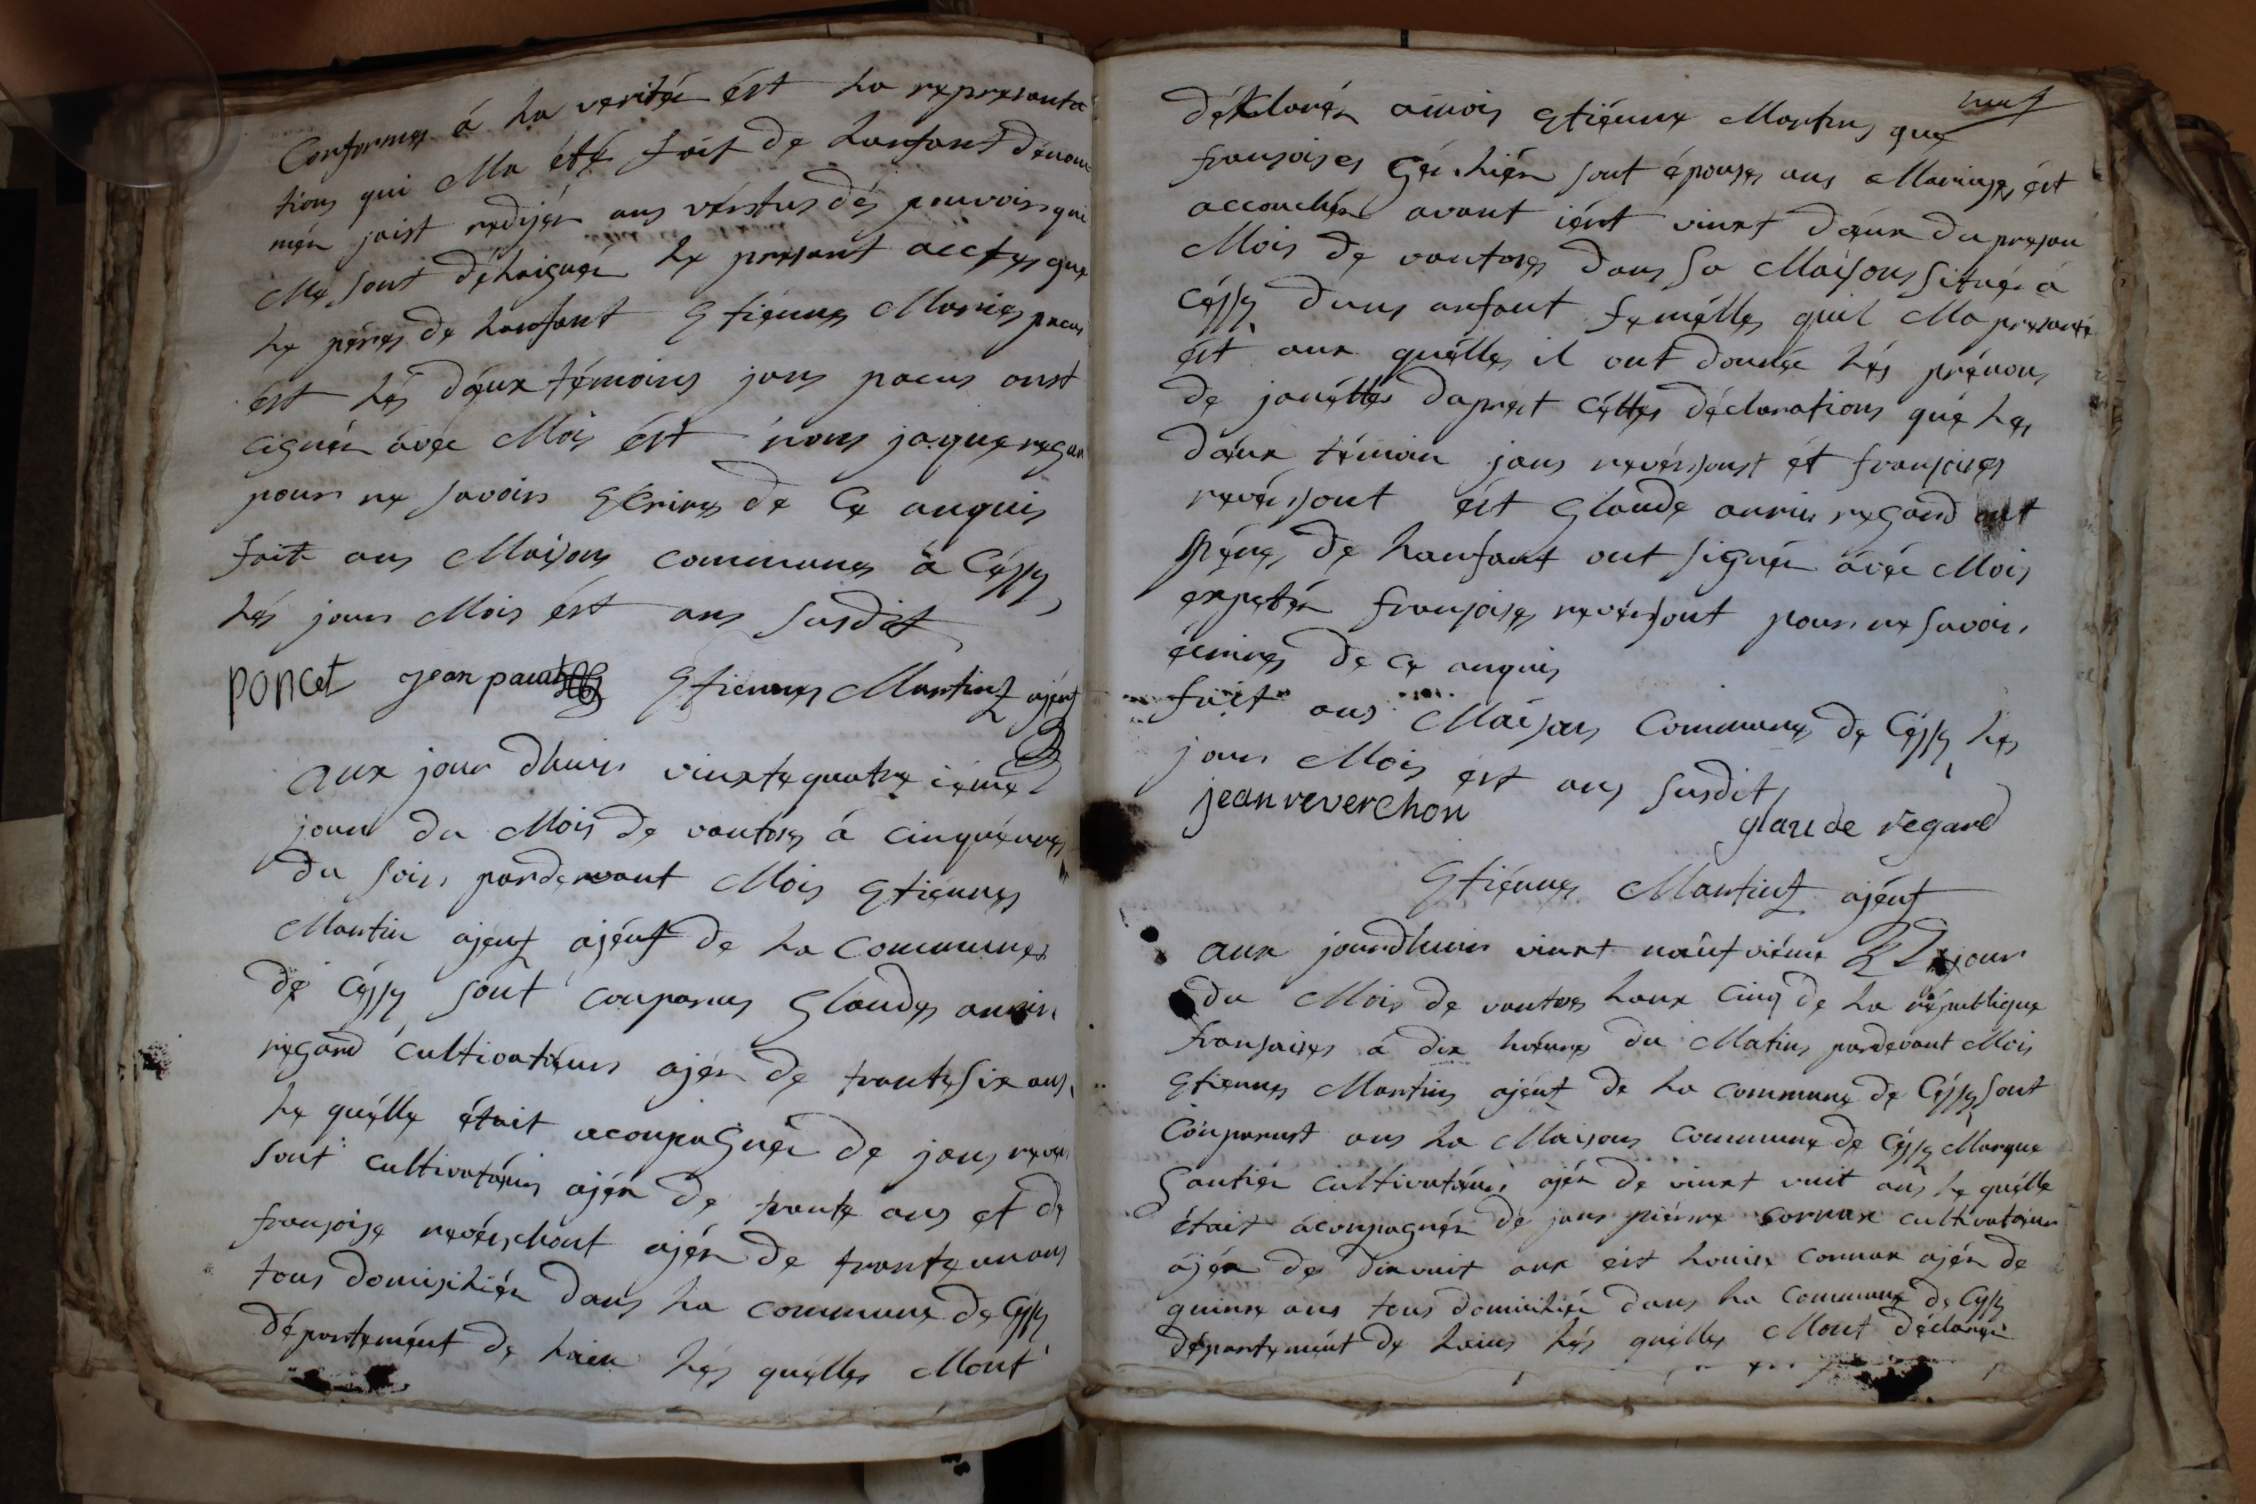 Conformes á la veritée ést la represanta
tions qui Ma été fait de lanfant dénom
mér jaist redijér ans vértus dés pouvoirs qui
Me sont déléiguée le present acctes que
le péres de lanfant Etiénnes Maries pacus
ést lés déux témoins jans pacus onst
cignér avéc Mois ést nons jaque regar
pour ne savoirs Ecrires de Ce anquis
fait ans Maisons communes á Céssy
lés jours Mois ést ans susdit
poncet jean pacut Etiennes Martins ajént
aux jour dhuis vinxtequatre iéme
jour du Mois de vantoses á cinquéures
du soirs pardervant Mois Etiénnes
Martin ajent ajént de la communes
de Céssy sont conparus glaudes
regard cultivatéurs ajér de trantesix ans
le quélle était aconpagnér de jans rever
sont cultivatéurs ajér de trante ans et de
fransoise revérchont ajér de tranteunans
tous domisiliér dans la commune de Céssy
départemént de laien lés quélles Mont
neuf
déklarér amois Etiénne Martins que
fransoises sont épouse ans Mariages ést
accouchér avant iért vinxt déux du presan
Mois de vantoses dans sa Maisons située á
Céssy duns anfant femélles quil Ma presanté
ést aux quélles il ont donnée lés prénons
de janéttes daprest céttes déclarations que les
déux témoin jans revérsonst ét fransoises
revérsont ést glaude regard
péres de lanfant ont signér avéc Mois
exsetér fransoises revérsont pour ne savoirs
écrires de ce anquis
fait ans Maisons Communes de Céssy les
jours Mois ést ans susdit
jean reverchon
glaude regard
Etiénnes Martins ajént
aux jourdhuis vinxt néufviéme jour
du Mois de vantoses lanx Cinq de la républigue
fransaises á dix héures du Matins pardevant Mois
Etiennes Martins ajént de la commune de Céssy sont
Conparust ans la Maisons commune de Céssy Marque
gautiér cultivatéurs ajér de vinxt vuit ans le quélle
était aconpagnér de jans piérre cornax cultivatéur
ajér de dixvuit anx ést louise cornax ajér de
quinse ans tous domiciliér dans la Commune de Céssy
départemént de lains lés quélles Mont déclarér